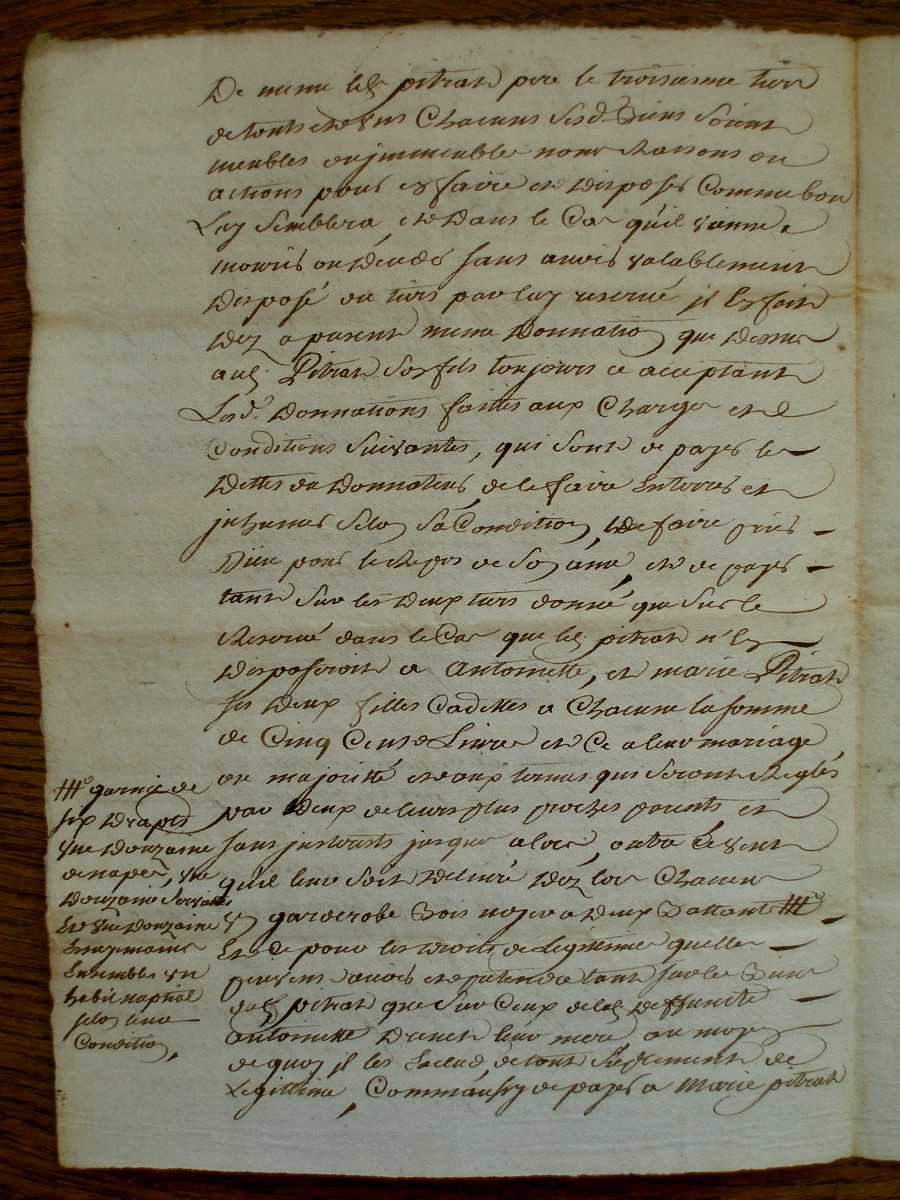 De meme led. pitrat pere le troisiesme tiers
de touts et d'uns Chacuns Sesd. Biens Soient
meubles ou jmmeubles noms Raisons ou
actions pour en faire et disposer Comme bon
Luy Semblera, et dans le Cas qu'il vienne a
mourir ou deceder sans avoir valablement
disposé du tiers par luy reservé jl En fait
dez a present meme donnation que dessus
aud. Pitrat Son fils toujours ce acceptant
Lesd. donnations faites aux Charges et
Conditions Suivantes, qui sont de payer les
dettes du donnateur, de le faire Enterrer et
jnhumer Selon Sa Condition, de faire prier
Dieu pour le Repos de Son ame, et de payer
tant Sur les deux tiers donné que Sur le
Reservé dans le Cas que led. pitrat n'En
disposeroit a Antoinette, et marie Pitrat
ses deux filles Cadettes a Chacune la somme
de Cinq Cents Livres et Ce a leur mariage
ou majorité et aux termes qui Seront Reglés
par deux de leurs plus proches parents et
sans jnterests jusques alors, outre Ce veut
qu'il leur Soit delivré dez lors Chacun
un garderobe Bois noyer a deux Battants
Et Ce pour les droits de Legitime quelles
peuvent avoir et pretendre tant sur les Biens
dud. pitrat que Sur Ceux de lad. deffuncte
antoinette leur mere, au moyen
de quoy jl les Exclud, de tout Supplement de
Legittime, Comm'aussy de payer a marie pitrat
garnie de
six draps
une douzaine
de napes, une
douzaine Serviettes
Et une douzaine
Essuymains
Ensembles un
habit nuptial
selon leur
Condition,